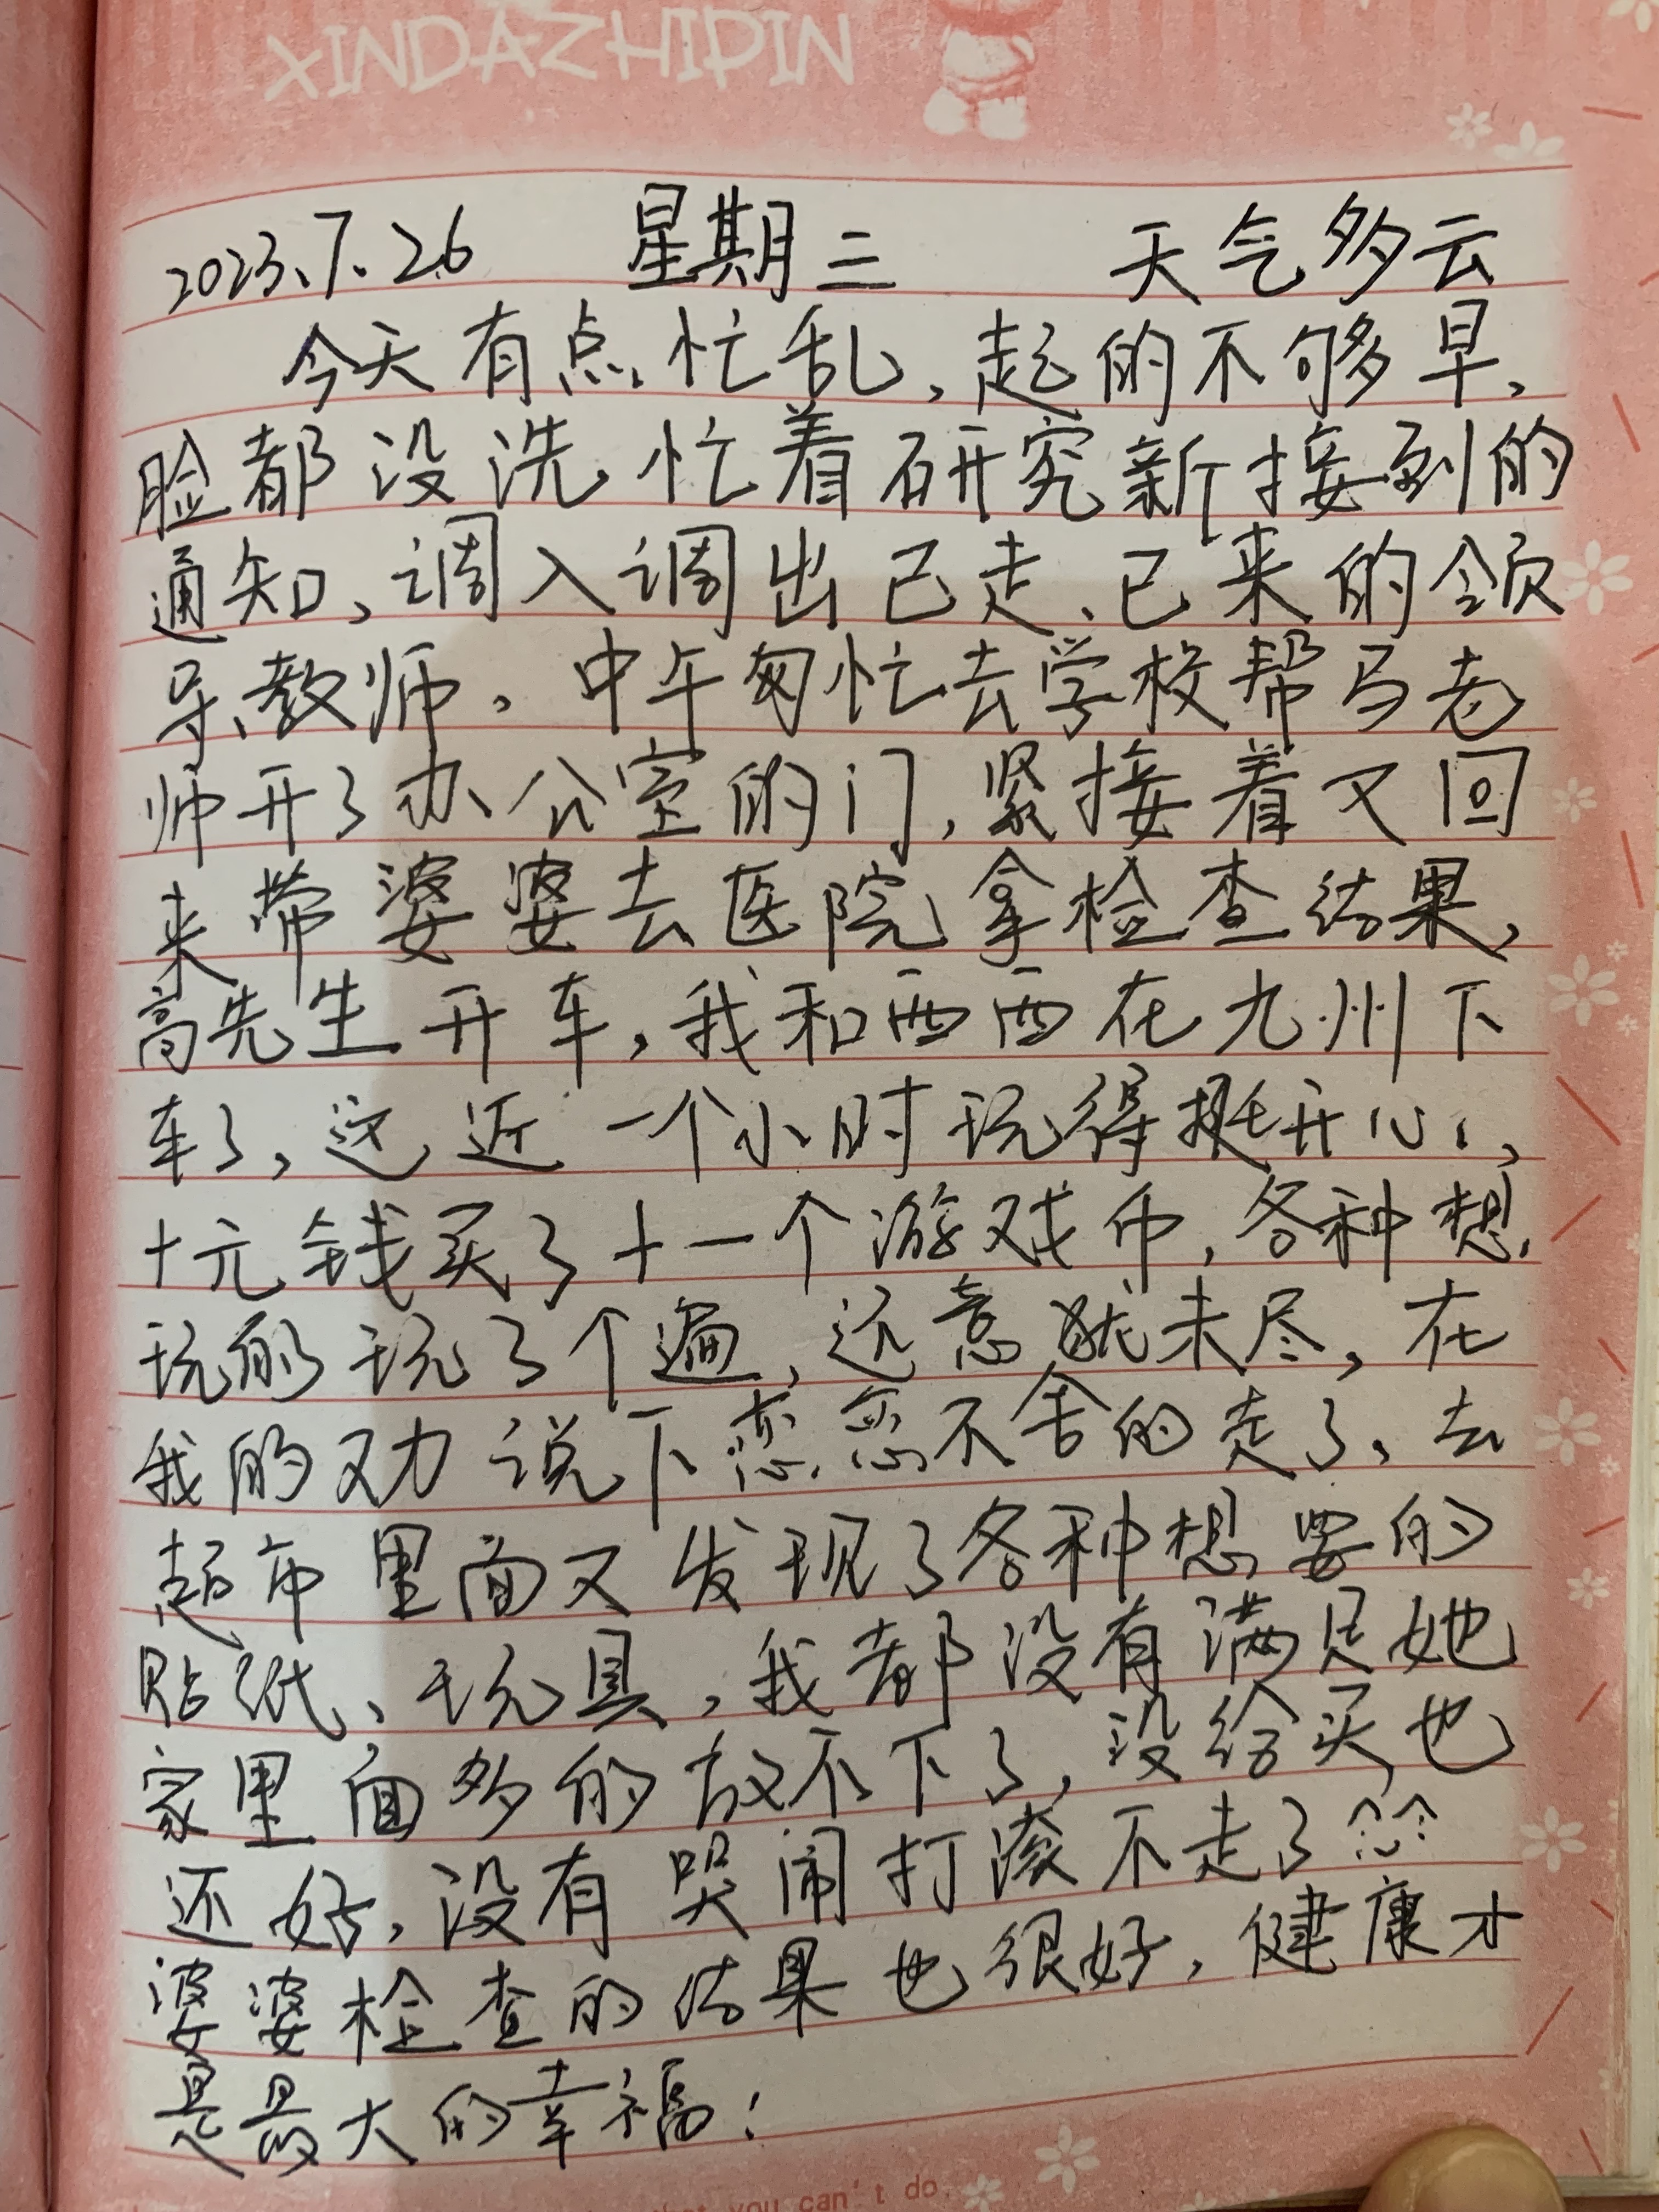 XINDAZHIPIN
2023.7.26 星期三 天气多云
今天有点忙乱,起的不够早,
脸都没洗忙着研究新接到的
通知,调入调出已走、已来的领
导、教师。中午匆忙去学校帮马老
师开了办公室的门,紧接着又回
来带婆婆去医院拿检查结果,
高先生开车,我和西西在九州下
车了,这近一个小时玩得挺开心,
十元钱买了十一个游戏币,各种想
玩的玩了个遍,还意犹未尽,在
我的劝说下恋恋不舍的走了,去
超市里面又发现了各种想要的
贴纸、玩具,我都没有满足她
家里面多的放不下了,没给买也
还好,没有哭闹打滚不走了^_^
婆婆检查的结果也很好,健康才
是最大的幸福!
you can't do.